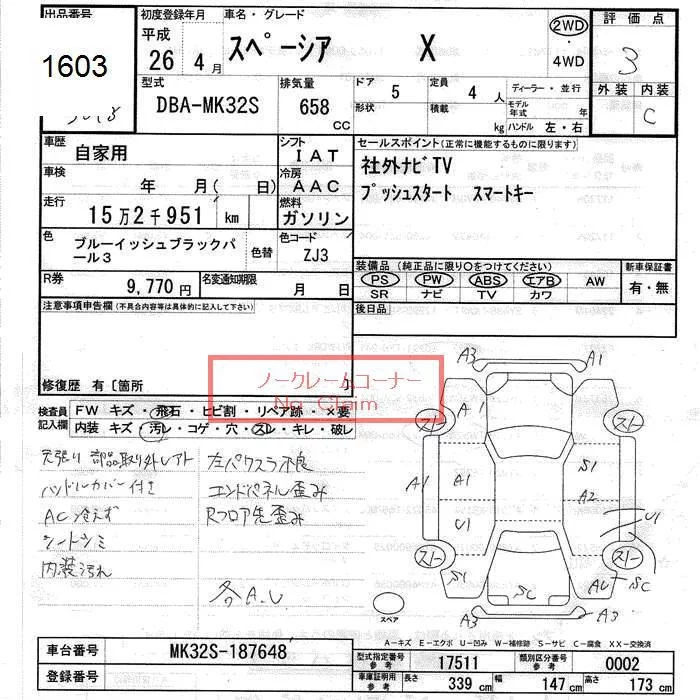 出品番号 初度登録年月 車名・グレード 2WD 評価点
1603 平成 26 4月 スペーシア X 4WD 3
外装 内装
C
型式 排気量 ドア 5 定員 4 人 ディーラー・並行
DBA-MK32S 658 CC 形状 積載 kg モデル年式 年
ハンドル 左・右
車歴 自家用 シフト IAT セールスポイント(正常に機能するものに限ります)
車検 年 月( 日) 冷房 AAC 社外ナビTV
プッシュスタート スマートキー
走行 15万2千951 km 燃料 ガソリン
色 ブルーイッシュブラックパール3 色替 色コード ZJ3
装備品 (純正品に限り○をつけてください) 新車保証書
R券 9,770円 名変通知期限 月 日 PS PW ABS エアB AW 有・無
SR ナビ TV カワ
注意事項申告欄(不具合内容等は具体的に記入して下さい) 後日品
修復歴 有〔箇所 〕
ノークレームコーナー
No Claim
検査員記入欄 FW キズ・飛石・ヒビ割・リペア跡・×要
内装 キズ・汚レ・コゲ・穴・スレ・キレ・破レ
天張り 部品取り外しアト 左パワスラ不良
ハンドルカバー付き エンドパネル歪み
AC冷えず Rフロア先歪み
シートシミ
内装汚れ
各A.U
A3 A1
A1
A1 A1 S1
A2
U1 U1
S1 SC AU SC
A3 A3
スペア
A-キズ E-エクボ U-凹み W-補修跡 S-サビ C-腐食 XX-交換済
車台番号 MK32S-187648 型式指定番号 参考 17511 類別区分番号 参考 0002
登録番号 車庫証明用 参考 長さ 339 cm 幅 147 cm 高さ 173 cm